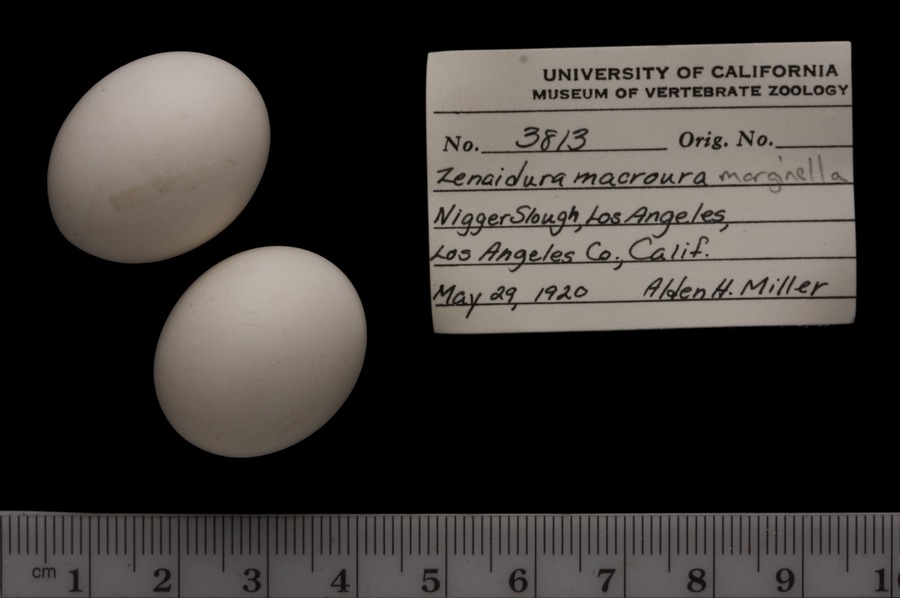 UNIVERSITY OF CALIFORNIA
MUSEUM OF VERTEBRATE ZOOLOGY
No. 3813 Orig. No.
Zenaidura macroura marginella
Nigger Slough, Los Angeles,
Los Angeles Co., Calif.
May 29, 1920 Alden H. Miller
cm 1 2 3 4 5 6 7 8 9 1